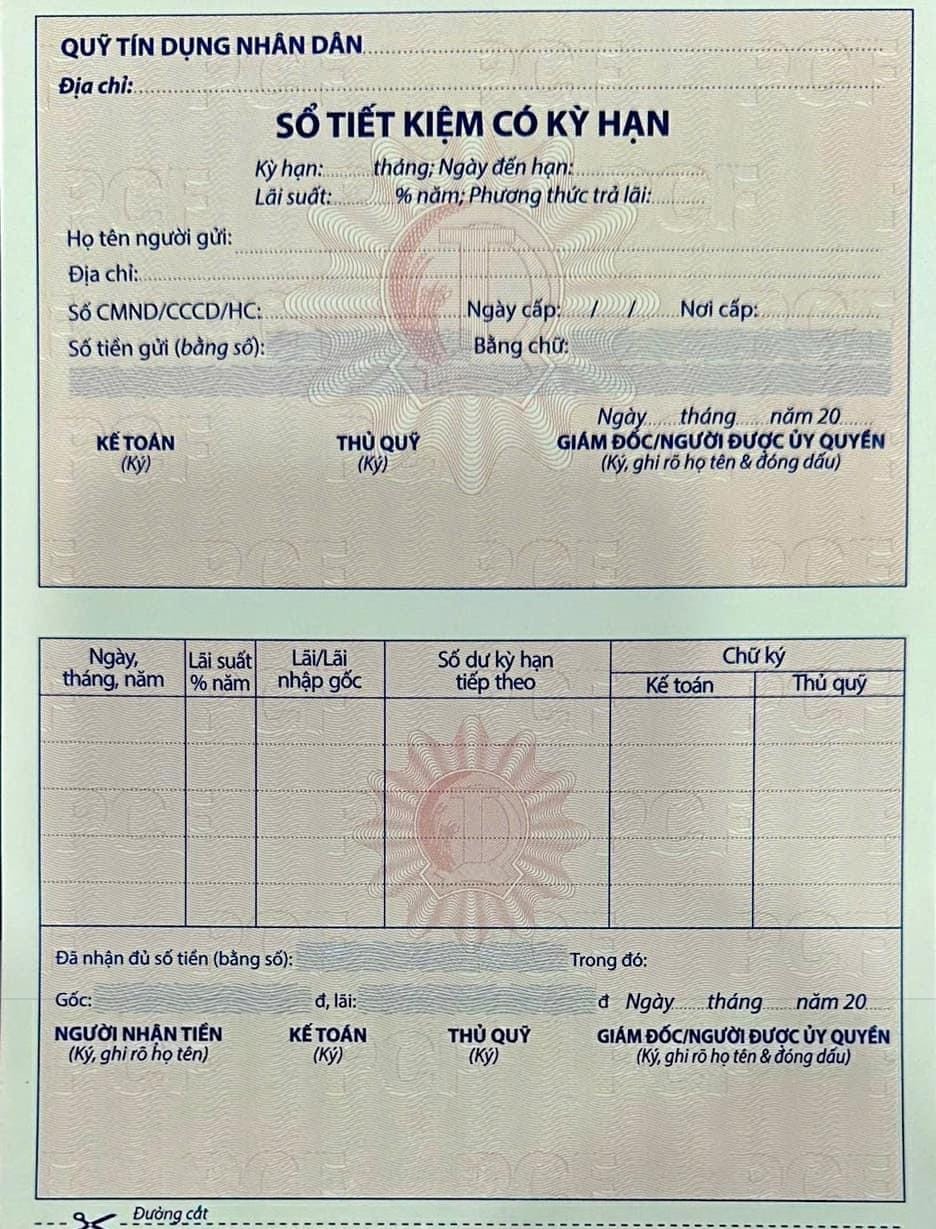 QUỸ TÍN DỤNG NHÂN DÂN
Địa chỉ:
SỔ TIẾT KIỆM CÓ KỲ HẠN
Kỳ hạn: tháng; Ngày đến hạn:
Lãi suất: % năm; Phương thức trả lãi:
Họ tên người gửi:
Địa chỉ:
Số CMND/CCCD/HC: Ngày cấp: / / Nơi cấp:
Số tiền gửi (bằng số): Bằng chữ:
Ngày tháng năm 20
KẾ TOÁN THỦ QUỸ GIÁM ĐỐC/NGƯỜI ĐƯỢC ỦY QUYỀN
(Ký) (Ký) (Ký, ghi rõ họ tên & đóng dấu)
Ngày, Lãi suất Lãi/Lãi Số dư kỳ hạn Chữ ký
tháng, năm % năm nhập gốc tiếp theo Kế toán Thủ quỹ
Đã nhận đủ số tiền (bằng số): Trong đó:
Gốc: đ, lãi: đ Ngày tháng năm 20
NGƯỜI NHẬN TIỀN KẾ TOÁN THỦ QUỸ GIÁM ĐỐC/NGƯỜI ĐƯỢC ỦY QUYỀN
(Ký, ghi rõ họ tên) (Ký) (Ký) (Ký, ghi rõ họ tên & đóng dấu)
Đường cắt